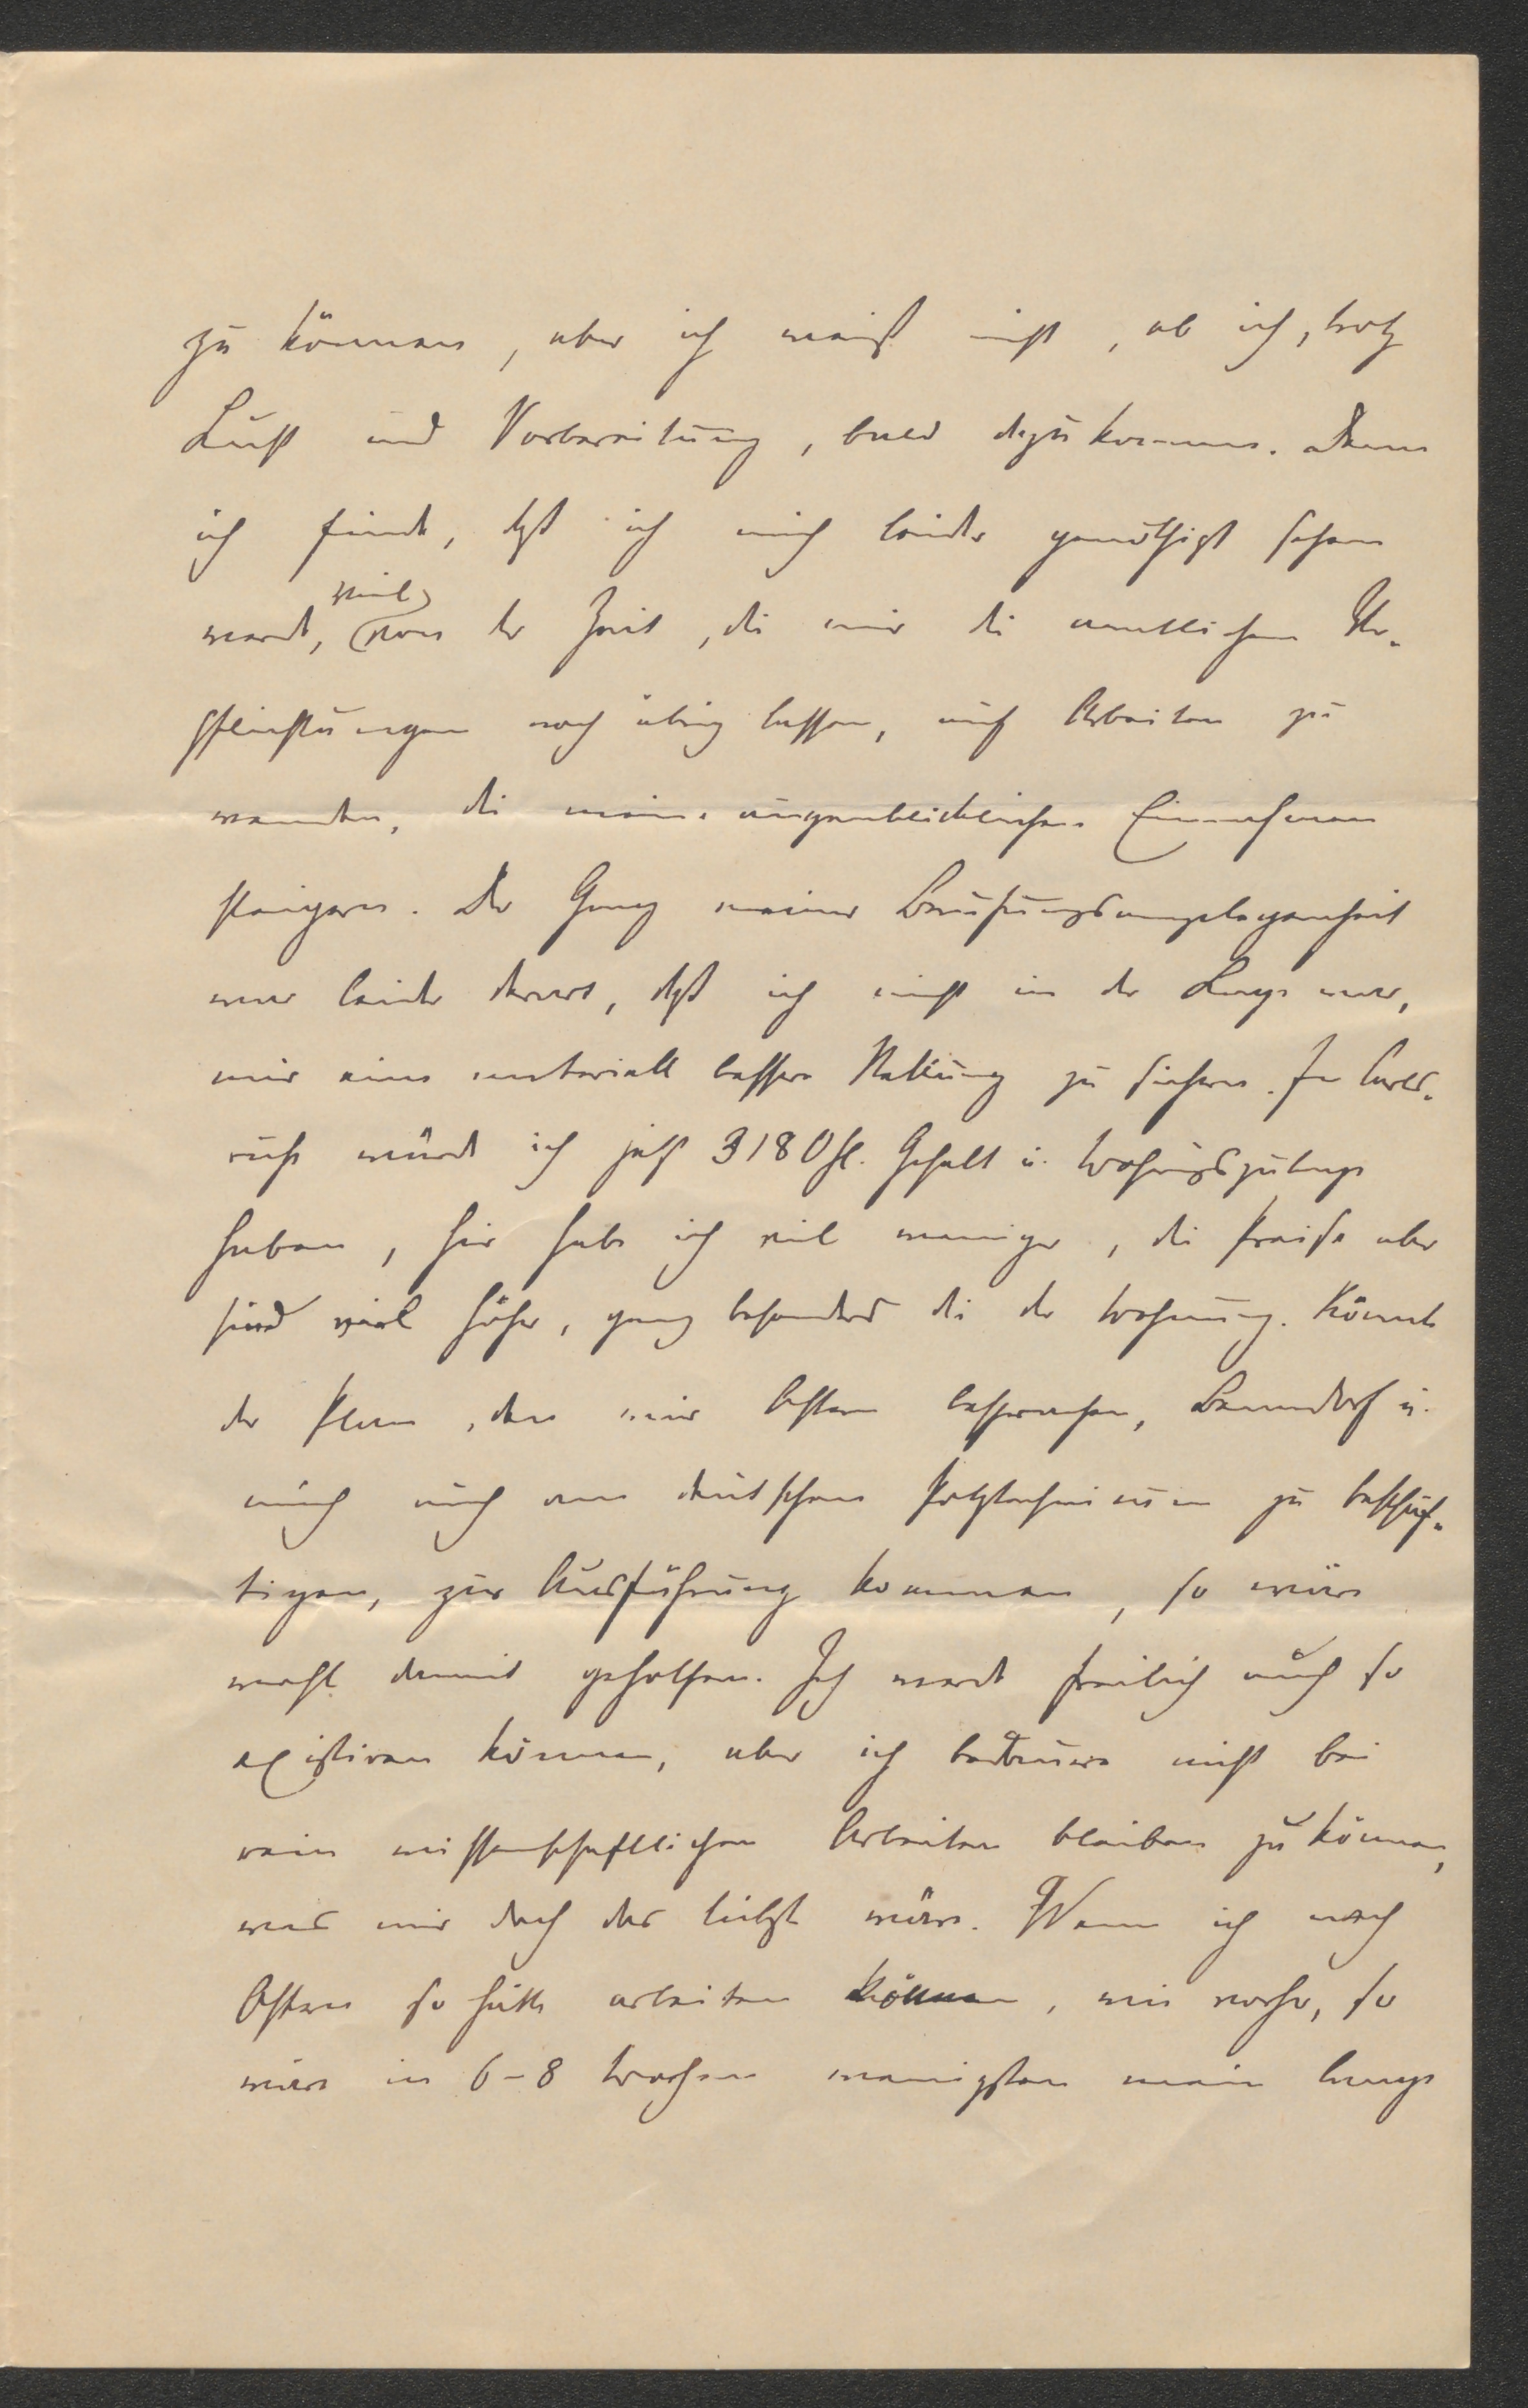 zu können, aber ich weiß nicht, ob ich, trotz
Lust und Vorbereitung, bald dazu komme. Denn
ich finde, daß ich mich leider genöthigt sehen
werde, viel von der Zeit, die mir die amtlichen Ver-
pflichtungen noch übrig lassen, auf Arbeiten zu
wenden, die meine augenblicklichen Einnahmen
steigern. Der Gang meiner Berufungsangelegenheit
war leider derart, daß ich nicht in der Lage war,
mir eine materiell bessere Stellung zu sichern. In Carls-
ruhe würde ich jetzt 3180 fl. Gehalt u. Wohnungszulage
haben, hier habe ich viel weniger, die Preise aber
sind viel höher, ganz besonders die der Wohnung. Könnte
der Plan, den wir Ostern besprachen, Benndorf u.
mich auch am deutschen Polytechnicum zu beschäf-
tigen, zur Ausführung kommen, so wäre
wohl damit geholfen. Ich werde freilich auch so
existiren können, aber ich bedauere nicht bei
rein wissenschaftlichen Arbeiten bleiben zu können,
was mir doch das liebste wäre. Wenn ich nach
Ostern so hätte arbeiten können, wie vorher, so
wäre in 6-8 Wochen wenigsten mein lange